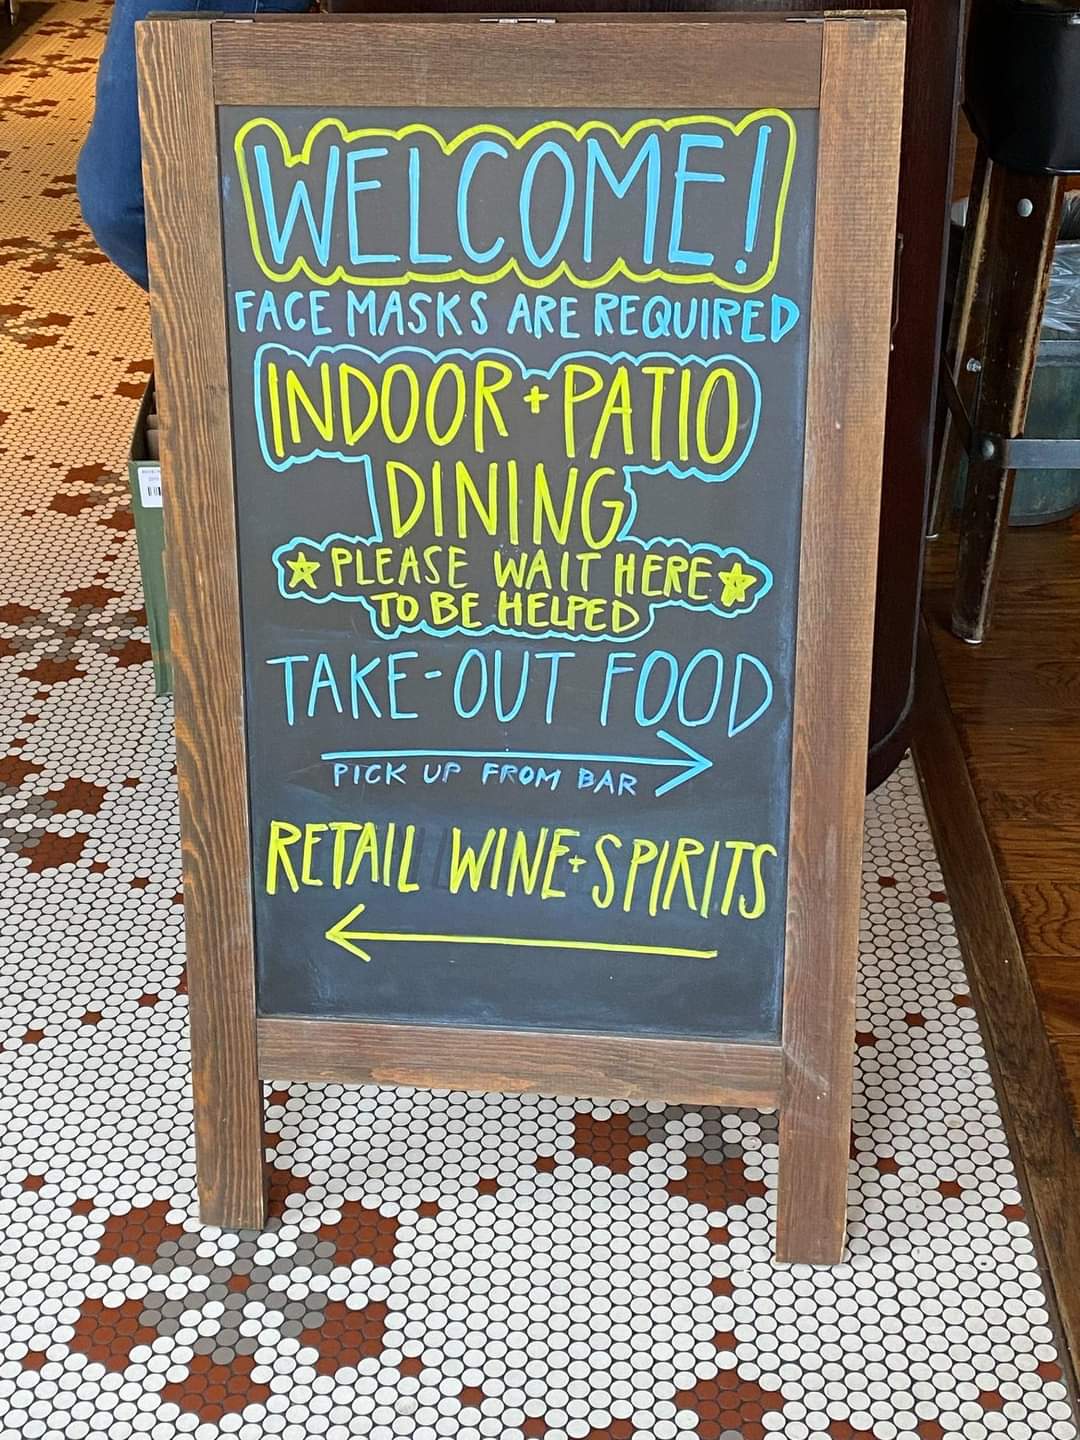 WELCOME!
FACE MASKS ARE REQUIRED
INDOOR + PATIO
DINING
PLEASE WAIT HERE
TO BE HELPED
TAKE-OUT FOOD
PICK UP FROM BAR
RETAIL WINE + SPIRITS